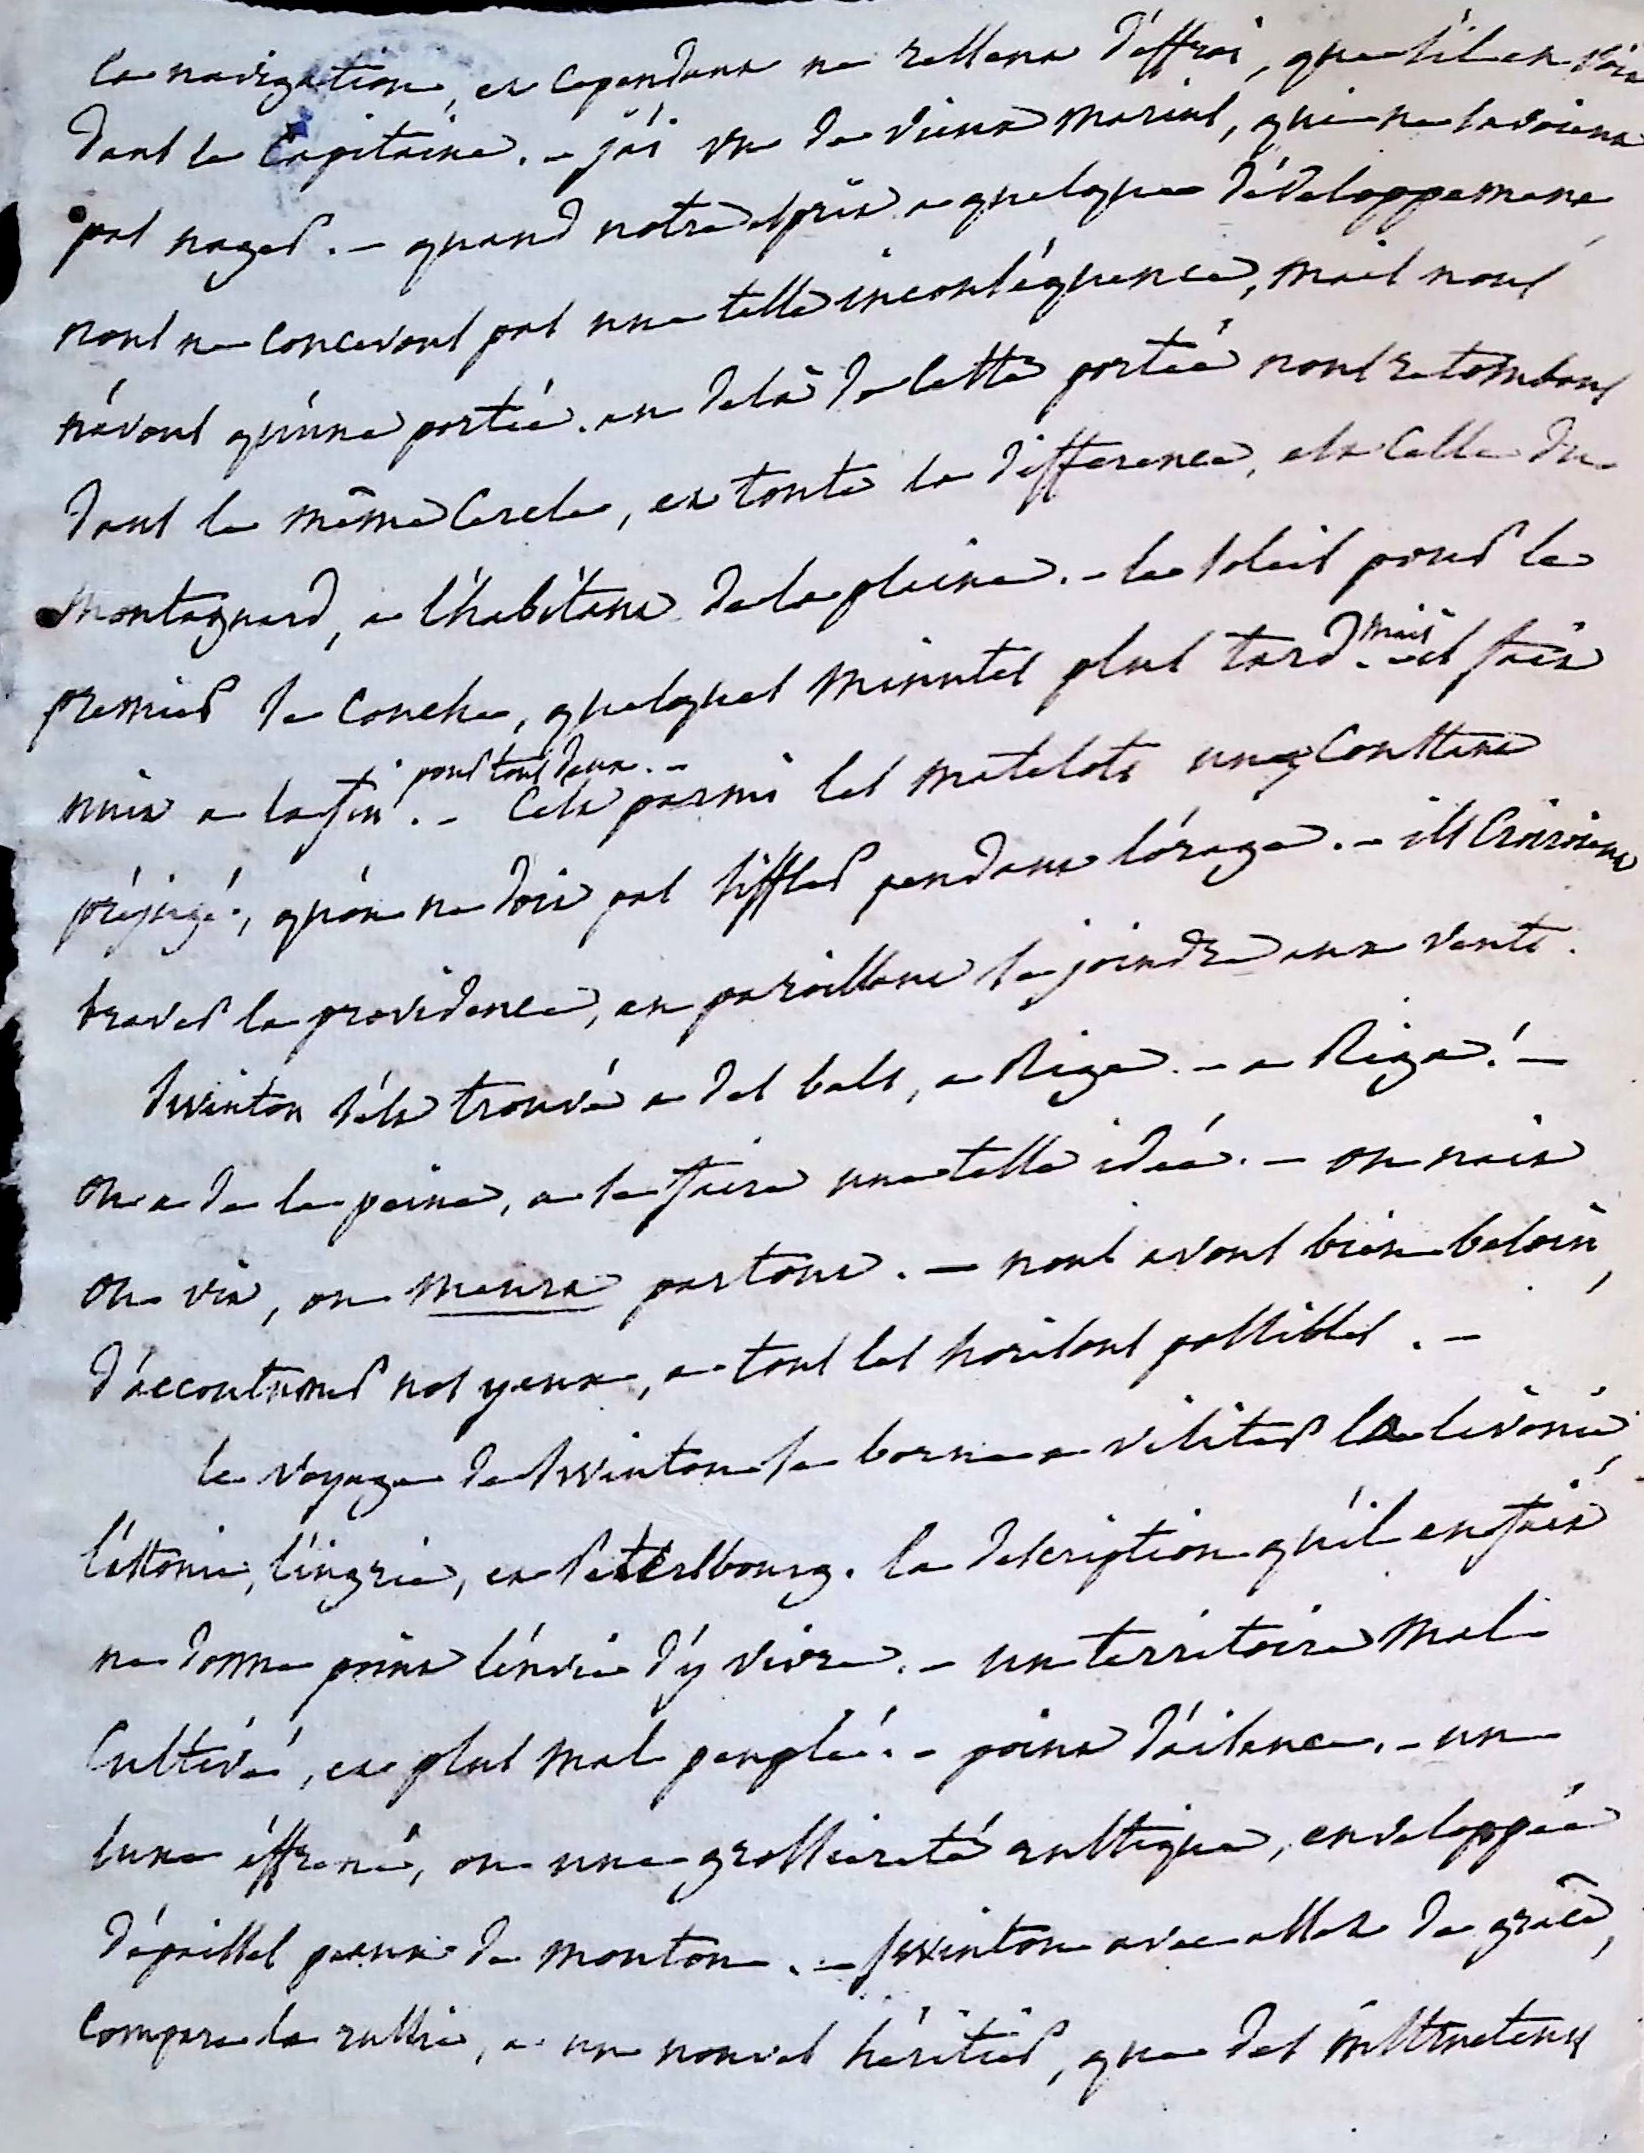 la navigation, et cependant ne ressent d'effroi, que s'il en voit
dans le Capitaine. - j'ai vu de vieux marins, qui ne savoient
pas nager. - quand notre esprit a quelque développement,
nous ne concevons pas une telle inconséquence, mais nous
n'avons qu'une portée. au delà de cette portée nous retombons
dans le même Cercle, et toute la différence, est Celle du
montagnard, a l'habitant de la plaine. - le soleil pour le
premier se couche, quelques minutes plus tard. - mais il fait
nuit a la fin pour tous deux. - C'est parmi les matelots un Constant
préjugé, qu'on ne doit pas siffler pendant l'orage. - ils Croiroient
braver la providence, en paroissant se joindre aux vents.
Swinton s'est trouvé a des bals, a Riga. - a Riga! -
on a de la peine, a se faire une telle idée. - on nait
on vit, on meurt partout. - nous avons bien besoin,
d'accoutumer nos yeux, a tous les horisons possibles. -
le voyage de Swinton se borne a visiter la livonie,
l'éstonie, l'ingrie, et Petersbourg. la description qu'il en fait
ne donne point l'envie d'y vivre. - un territoire mal
Cultivé, et plus mal peuplé. - point d'aisance. - un
luxe éffrené, ou une grossiereté rustique, enveloppée
d'épaisses peaux de mouton. - Swinton avec assez de grâce,
compare la russie, a un nouvel héritier, que des instructeurs